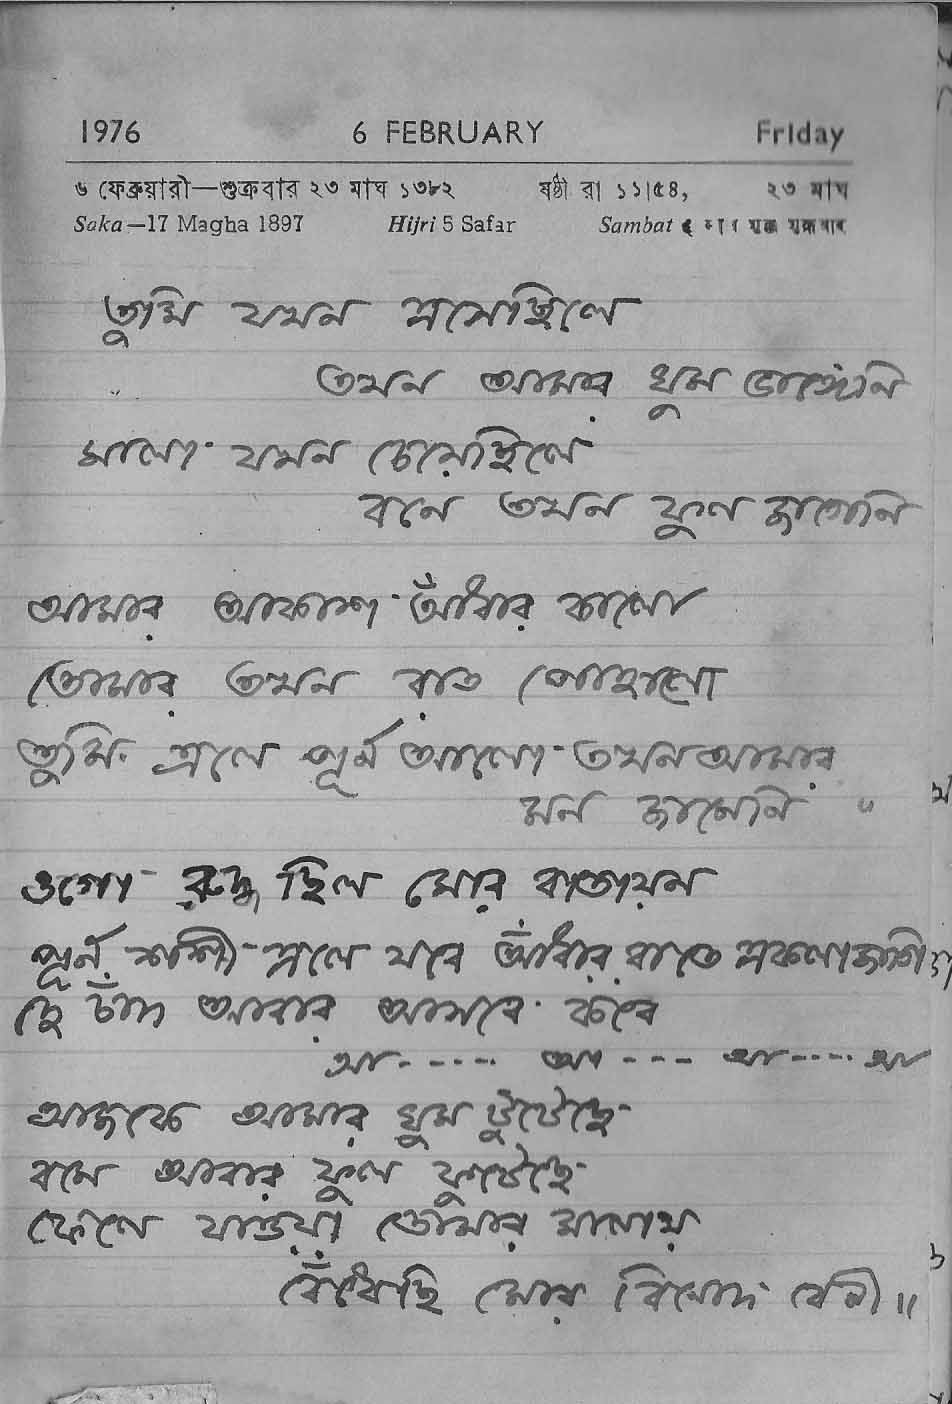 1976 6 FEBRUARY Friday
৬ ফেব্রুয়ারী—শুক্রবার ২৩ মাঘ ১৩৮২ ষষ্ঠী রা ১১।৫৪, ২৩ মাঘ
Saka—17 Magha 1897 Hijri 5 Safar Sambat
তুমি যখন এসেছিলে
তখন আমার ঘুম ভাঙ্গেনি
মালা যখন চেয়েছিলে
বনে তখন ফুল জাগেনি
আমার আকাশ আঁধার কালো
তোমার তখন রাত পোহালো
তুমি এলে পূর্ন আলো তখন আমার
মন জানেনি "
ওগো রুদ্ধ ছিল মোর বাতায়ন
পূর্ন শশী এলে যবে আঁধার রাতে একলা জাগি
হে চাঁদ আবার আসবে কবে
আ----- আ ---- আ----- আ
আজকে আমার ঘুম টুটেছে
বনে আবার ফুল ফুটেছে
ফেলে যাওয়া তোমার মালায়
বেঁধেছি মোর বিনোদ বেনী ॥